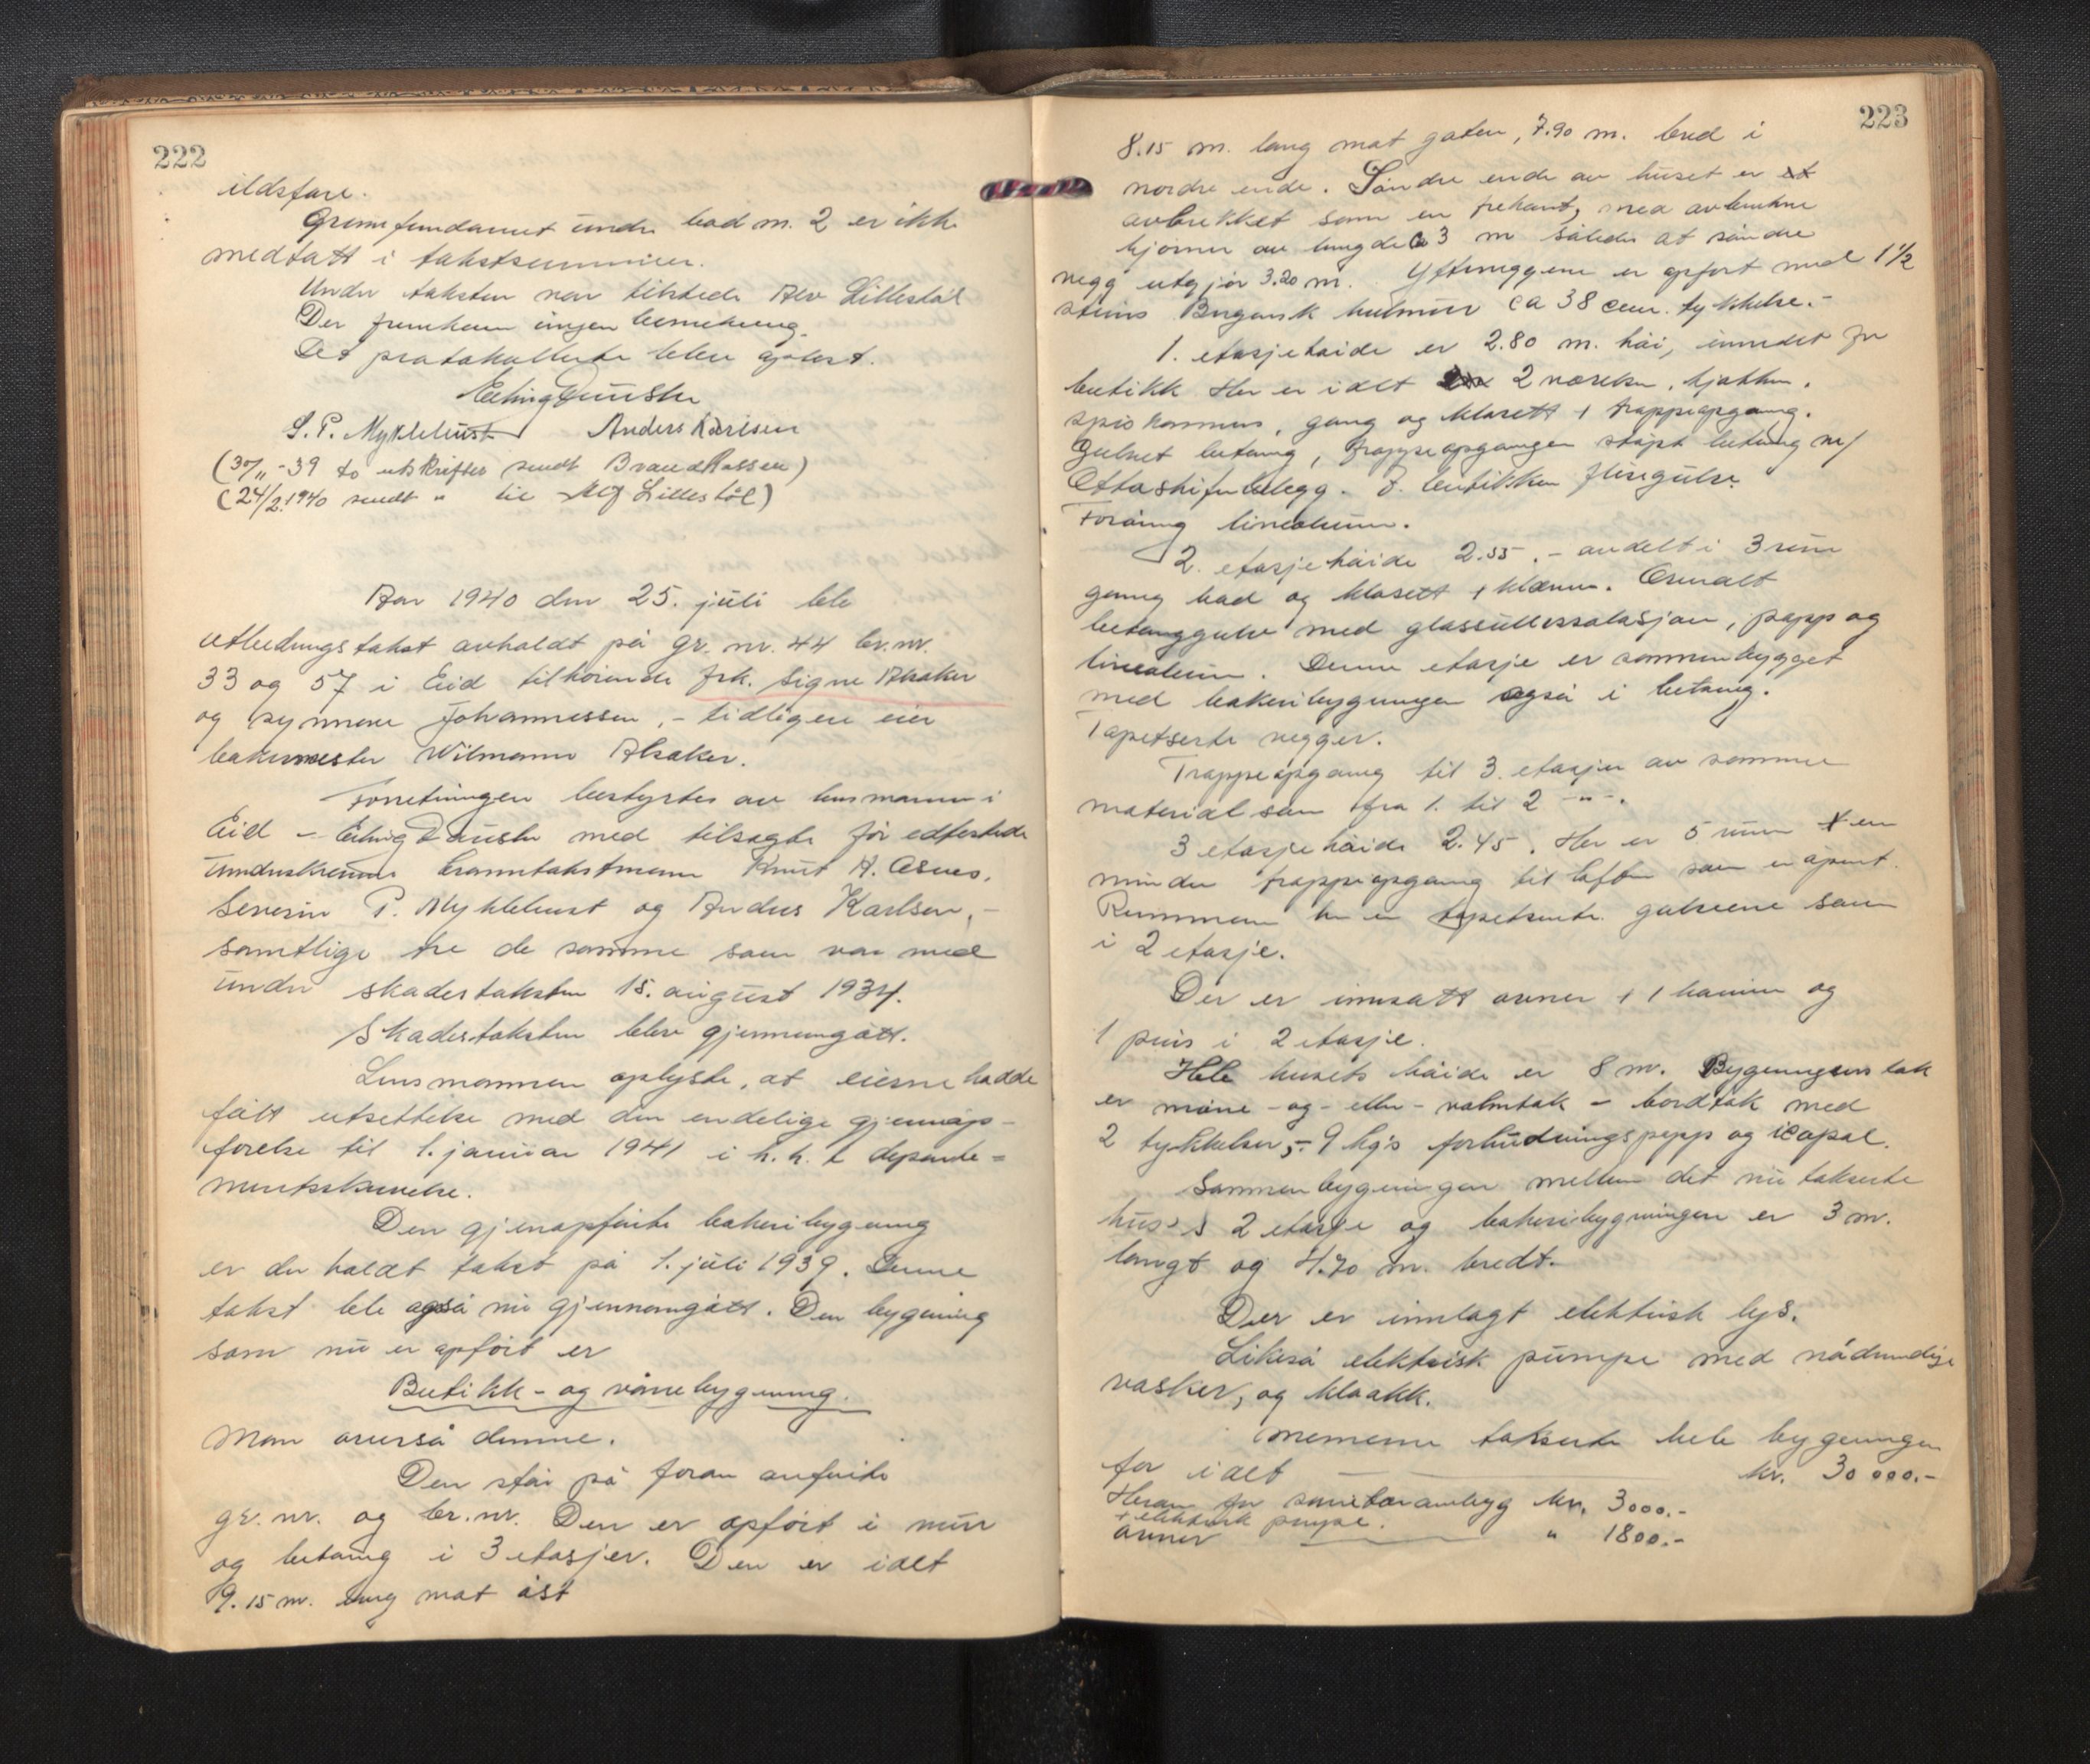 222
ildsfare.
Grunnfundamnet under bad m. 2 er ikke
medtatt i takstsummen.
Under taksten var tilstede Alv Lillestøl
Der fremkom ingen bemerkning.
Det protokollerte blev oplest.
Erling Dunsker
S. P. Myklebust Anders Karlsen
(30/11-39 to utskrifter sendt Brandkassen)
(24/2.1940 sendt " til Alf Lillestöl)
Aar 1940 den 25. juli ble
utbedringstakst avholdt på gr. nr. 44 br. nr.
33 og 57 i Eid tilhörende frk. Signe Alsaker
og Synneve Johannessen, - tidligere eier
bakermester Wilmann Alsaker.
Forretningen bestyrtes av lensmannen i
Eid - Erling Dunsker med tilsagte før edfestede
undvskrevne branntakstmenn Knut A. Osnes,
Severin P. Myklebust og Anders Karlsen, -
samtlige tre de samme som var med
under skadestaksten 15. august 1934.
Skadestaksten blev gjennemgått.
Lensmannen oplyste, at eierne hadde
fått utsettelse med den endelige gjennop-
førelse til 1. januar 1941 i h. h. t departe-
mentsskrivelse.
Den gjenopførte bakeribygning
er der holdt takst på 1. juli 1939. Denne
takst ble også nu gjennomgått. Den bygning
som nu er opført er
Butikk - og vånebygning.
Man overså denne.
Den står på foran anførte
gr. nr. og br. nr. Den er opfört i mur
og betong i 3 etasjer. Den er ialt
9.15 m. lang mot øst
223
8.15 m. lang mot gaten, 7.90 m. bred i
nordre ende. Søndre ende av huset er et
avbrekket som en trekant, med avbrukne
hjørner av lengde 3 m således at søndre
vegg utgjør 3.20 m. Ytterveggene er opført med 1½
steins Bergensk hulmur ca 38 cm. tykkelse. -
1. etasjehøide er 2.80 m. høi, innredet for
butikk Her er ialt 2 værelser, kjøkken,
spiskammer, gang og klosett + trappeopgang.
Gulvet betong, trappeopgangen støpt betong m/
Ottaskiferbelegg. I butikken flisegulv.
Foröving linoleum.
2. etasjehöide 2.55. - avdelt i 3 rum
gang bad og klosett + klærum. Overalt
betonggulv med glassullisolasjon, papp og
linoleum. Denne etasje er sammenbygget
med bakeribygningen også i betong.
Tapetserte vegger.
Trappeopgang til 3. etasjer av samme
material som fra 1. til 2 -"-.
3 etasjehöide 2.45. Her er 5 rum + en
mindre trappeopgang til loftet som er åpent.
Rummene her er tapetserte. gulvene som
i 2 etasje.
Der er innsatt ovner + 1 kamin og
1 peis i 2 etasje.
Hele husets höide er 8 m. Bygningens tak
er måne - og - eller - valmtak - bordtak med
2 tykkelser, - 9 kg's forhudningspapp og icopal.
Sammenbygningen mellem det nu takserte
huses 2 etasje og bakeribygningen er 3 m.
langt og 4.70 m. bredt.
Der er innlagt elektrisk lys.
Likeså elektrisk pumpe med nødvendige
vasker, og kloakk.
Mennene takserte hele bygningen
for ialt kr. 30 000.-
Herav for sanitæranlegg kr. 3000.-
+ elektrisk pumpe.
ovner " 1800.-